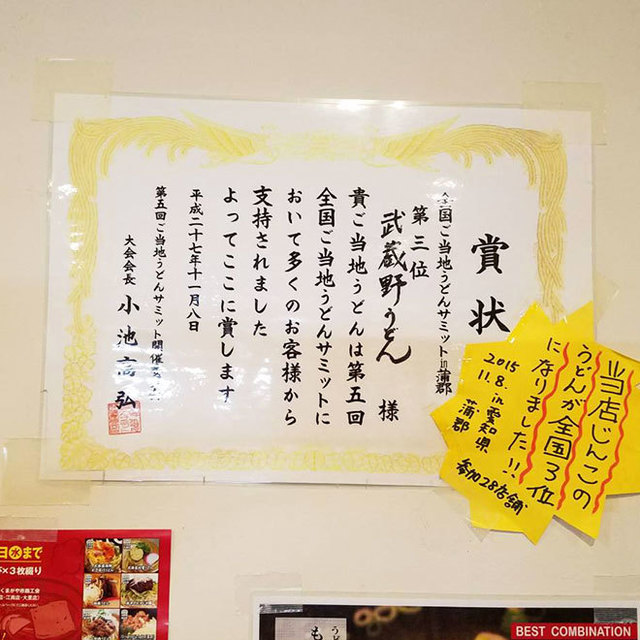 賞状
全国ご当地うどんサミットin蒲郡
第三位
武蔵野うどん 様
貴ご当地うどんは第五回
全国ご当地うどんサミットに
おいて多くのお客様から
支持されました
よってここに賞します
平成二十七年十一月八日
第五回ご当地うどんサミット開催
大会会長 小池高弘
当店じんこの
うどんが全国3位
になりました!!
2015
11.8. in 愛知県
蒲郡
参加28店舗
日水まで
×3枚綴り
くまがや市商工会
BEST COMBINATION
うど
も